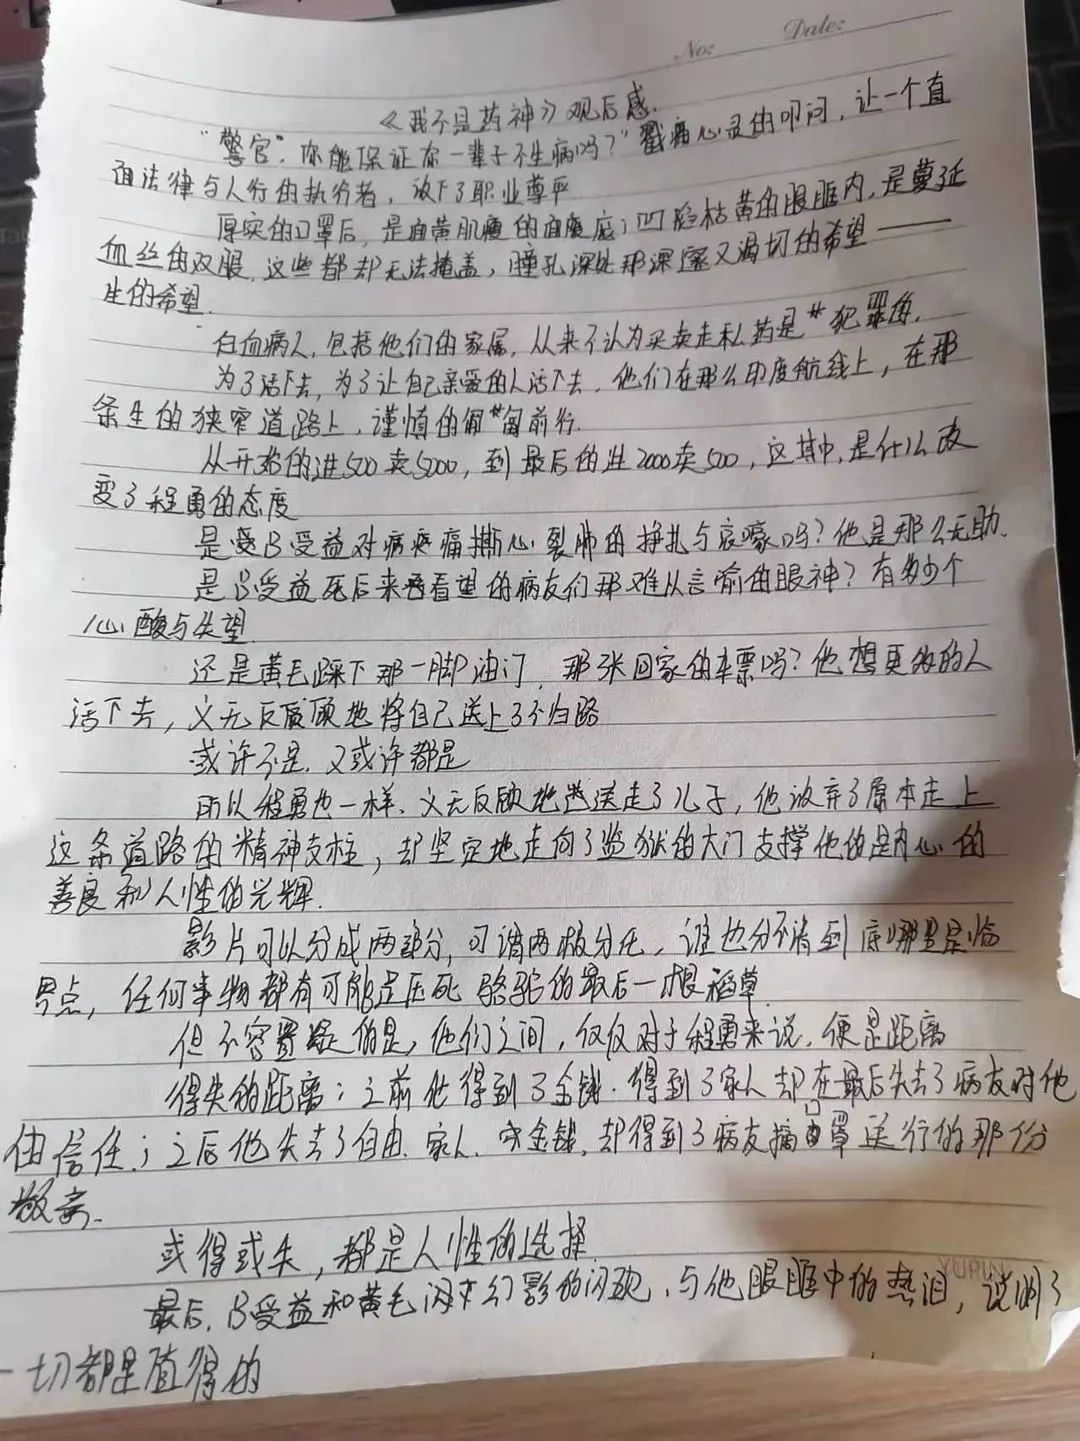 No: Date:
《我不是药神》观后感.
"警官,你能保证你一辈子不生病吗?"戳痛心灵的叩问,让一个直
面法律与人行的执行者,放下了职业尊严
厚实的口罩后,是面黄肌瘦的面庞;凹陷枯黄的眼眶内,是蔓延
血丝的双眼.这些都却无法掩盖,瞳孔深处那深邃又渴切的希望——
生的希望.
白血病人,包括他们的家属,从来不认为买卖走私药是犯罪的.
为了活下去,为了让自己亲爱的人活下去,他们在那么印度航线上,在那
条生的狭窄道路上,谨慎的匍匐前行.
从开始的进500卖5000,到最后的进2000卖500,这其中,是什么改
变了程勇的态度
是受吕受益对病疼痛撕心裂肺的挣扎与哀嚎吗?他是那么无助.
是吕受益死后来看望的病友们那难以言喻的眼神?有多少个
心酸与失望.
还是黄毛踩下那一脚油门,那张回家的车票吗?他想更多的人
活下去,义无反顾地将自己送上了不归路
或许不是.又或许都是
所以程勇也一样、义无反顾地送走了儿子,他放弃了原本走上
这条道路的精神支柱,却坚定地走向了监狱的大门支撑他的是内心的
善良和人性的光辉.
影片可以分成两部分,可谓两极分化,谁也分不清到底哪里是临
界点,任何事物都有可能是压死骆驼的最后一根稻草.
但不容置疑的是,他们之间,仅仅对于程勇来说,便是距离
得失的距离;之前他得到了金钱.得到了家人却在最后失去了病友对他
的信任;之后他失去了自由.家人.金钱,却得到了病友摘口罩送行的那份
敬意.
或得或失,都是人性的选择.
最后,吕受益和黄毛幻影的闪现,与他眼眶中的热泪,说明了
一切都是值得的
YUPIN